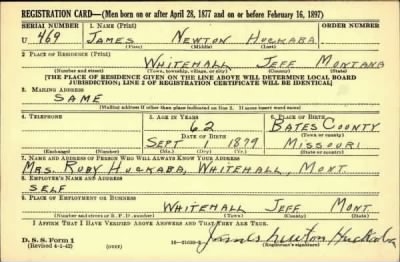 REGISTRATION CARD—(Men born on or after April 28, 1877 and on or before February 16, 1897)
SERIAL NUMBER 1. NAME (Print) ORDER NUMBER
U 469 JAMES NEWTON HUCKABA
(First) (Middle) (Last)
2. PLACE OF RESIDENCE (Print)
WHITEHALL JEFF MONTANA
(Number and street) (Town, township, village, or city) (County) (State)
[THE PLACE OF RESIDENCE GIVEN ON THE LINE ABOVE WILL DETERMINE LOCAL BOARD
JURISDICTION; LINE 2 OF REGISTRATION CERTIFICATE WILL BE IDENTICAL]
3. MAILING ADDRESS
SAME
[Mailing address if other than place indicated on line 2. If same insert word same]
4. TELEPHONE 5. AGE IN YEARS 6. PLACE OF BIRTH
62 BATES COUNTY
DATE OF BIRTH (Town or county)
SEPT 1 1879 MISSOURI
(Exchange) (Number) (Mo.) (Day) (Yr.) (State or country)
7. NAME AND ADDRESS OF PERSON WHO WILL ALWAYS KNOW YOUR ADDRESS
MRS. RUBY HUCKABA, WHITEHALL, MONT.
8. EMPLOYER'S NAME AND ADDRESS
SELF
9. PLACE OF EMPLOYMENT OR BUSINESS
WHITEHALL JEFF MONT.
(Number and street or R. F. D. number) (Town) (County) (State)
I AFFIRM THAT I HAVE VERIFIED ABOVE ANSWERS AND THAT THEY ARE TRUE.
D. S. S. Form 1
(Revised 4-1-42) (over) James Newton Huckaba
(Registrant's signature)